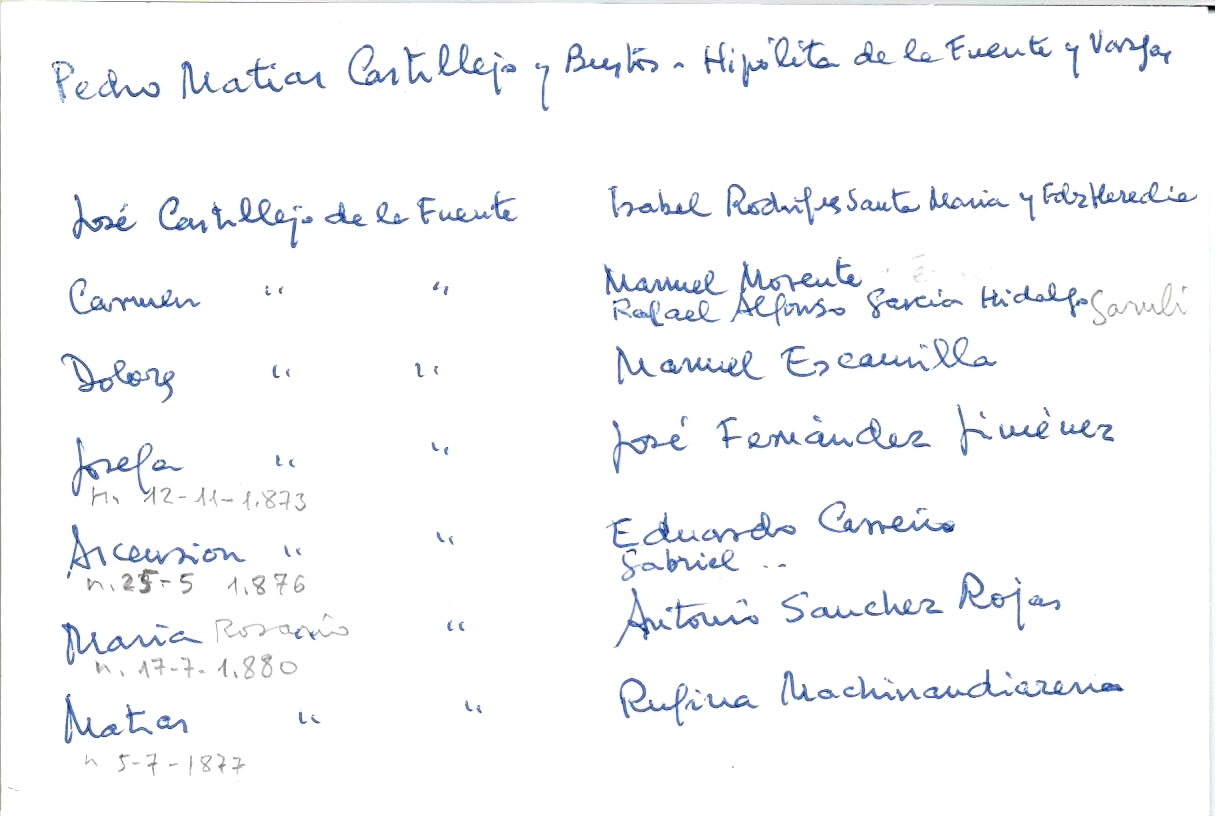 Pedro Matias Castillejo y Bustos - Hipólita de la Fuente y Vargas
José Castillejo de la Fuente Isabel Rodrigues Santa Maria y Fdz Heredia
Carmen " " Manuel Morente
Rafael Alfonso Garcia Hidalgo
Dolores " " Manuel Escamilla
Josefa " " José Fernàndez Jimènez
n. 12-11-1.873
Ascension " " Eduardo Carreño
n. 25-5 1.876 Gabriel "
Maria Rosario " Antonio Sanchez Rojas
n. 17-7-1.880
Matias " " Rufina Machinandiarena
n 5-7-1877